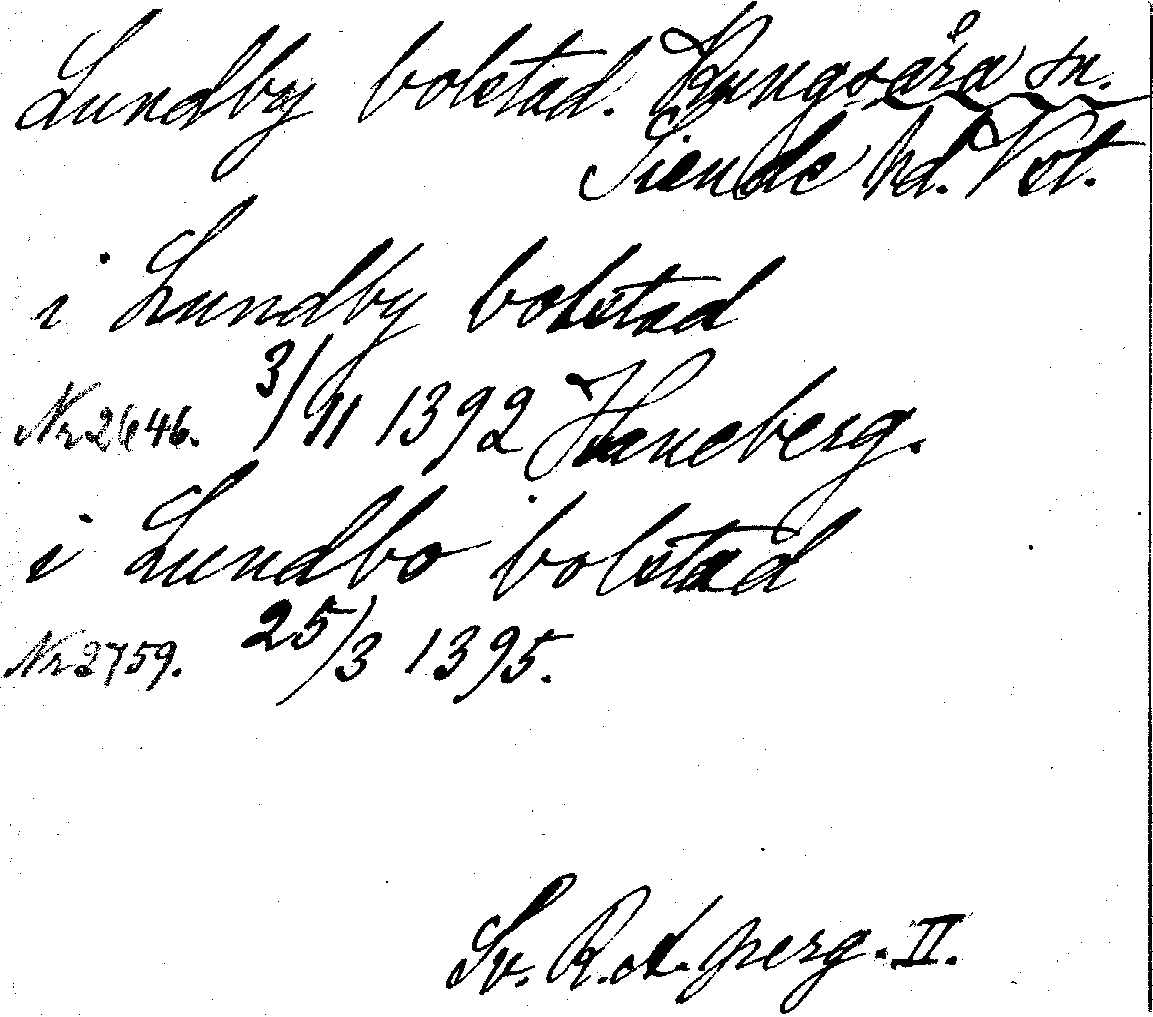 Lundby bolstad. Kungsåra sn.
Siende hd. Vst.
i Lundby bolstad
Nr 2646. 3/11 1392 Haneberg.
i Lundbo bolstad
Nr 2759. 25/3 1395.
Sv. R. A. perg. II.